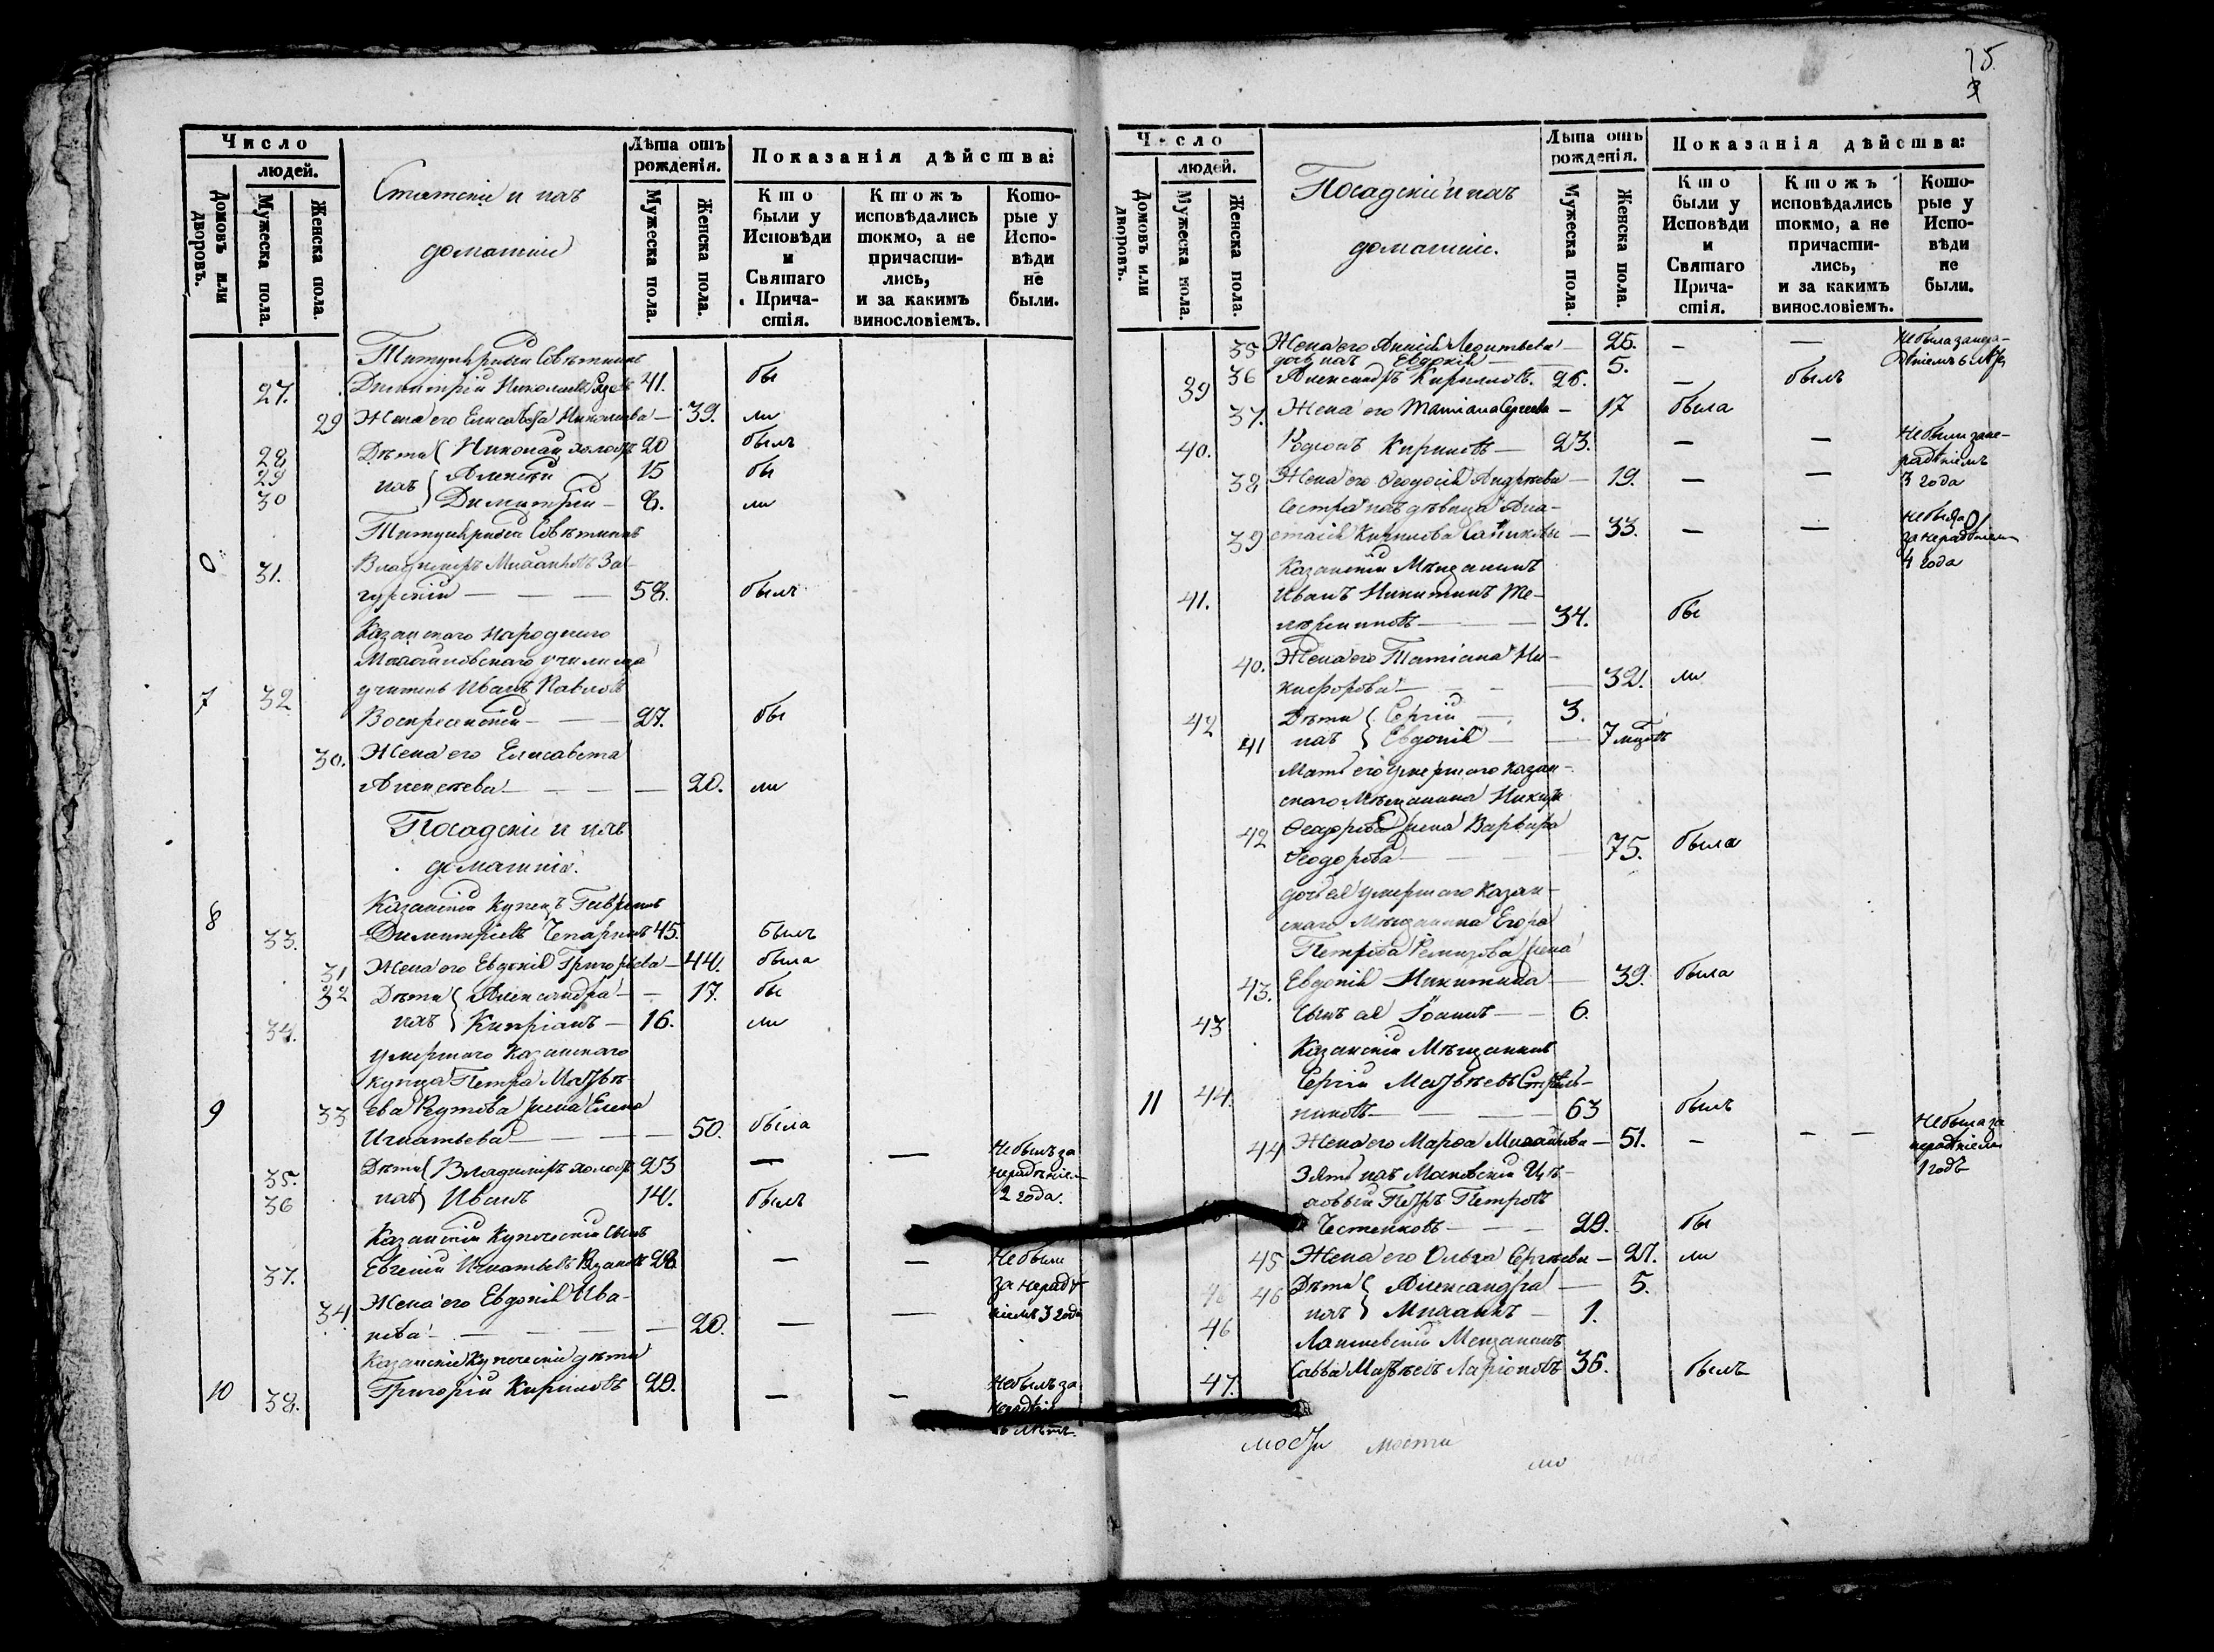 Число
людей.
Домовъ или дворовъ.
Мужеска пола.
Женска пола.
Статскіе и ихъ
домашніе
Лѣта отъ рожденія.
Мужеска пола.
Женска пола.
Показанія дѣйства:
Кто были у Исповѣди и Святаго Причастія.
Ктожъ исповѣдались токмо, а не причастились, и за какимъ винословіемъ.
Которые у Исповѣди не были.
Титулярный Совѣтникъ
27. Димитрій Николаевъ 41. бы
29 Жена его Елисавета Николаева — 39. ли
28 Дѣти Николай холостъ 20 былъ
29 ихъ Алексѣй 15 бы
30 Димитрій — 8. ли
Титулярный Совѣтникъ
31. Владимиръ Михайловъ За-
гурскій — — — 58. былъ
Казанского Народного
училища
7 32 учитель Иванъ Павловъ
Воскресенскій — — 27. бы
30. Жена его Елисавета
Алексѣева — — — 20. ли
Посадскіе и ихъ
домашніе.
8 Казанскій Купецъ Гаврилъ
33. Димитріевъ 45. былъ
31 Жена его Евдокія Григорьева — 44. была
32 Дѣти Александра — — 17. бы
34. ихъ Кипріанъ — 16. ли
умершаго Казанскаго
купца Петра Матвѣ-
9 33 ева жена Елена
Игнатьева — — — 50. была
35. Дѣти Владимиръ холостъ 23 — — Небылъ за нерадѣніем 2 года.
36 ихъ Иванъ 14. былъ
Казанскій Купеческій сынъ
37. Евгеній Игнатьевъ 28. — — Небыли
34 Жена его Евдокія Ива- за нерадѣ-
нова — — — — 20. — — ніемъ 3 года
Казанскіе Купеческіе дѣти
10 38. Григорій Кириловъ 29. — — Небылъ за
75.
Число
людей.
Домовъ или дворовъ.
Мужеска пола.
Женска пола.
Посадскіе и ихъ
домашніе.
Лѣта отъ рожденія.
Мужеска пола.
Женска пола.
Показанія дѣйства:
Кто были у Исповѣди и Святаго Причастія.
Ктожъ исповѣдались токмо, а не причастились, и за какимъ винословіемъ.
Которые у Исповѣди не были.
35 Жена его Леонтьева — 25. — —
36 дочь ихъ Евдокія — 5.
39 Александръ Кириловъ. 26. — былъ
37. Жена его Татіана Сергеева — 17 была
40. Родіонъ Кириловъ — 23. — — Небыли зане-
38 Жена его Ѳеодосія Андреева — 19. — — радѣніемъ 3 года
Сестра ихъ дѣвица Ана-
39 стасія Кирилова — 33. — — небыла за нерадѣніем 4 года
Казанскій Мѣщанинъ
41. Иванъ Никитинъ Ме-
— — 34. бы
40. Жена его Татіана Ни-
кифорова — — 32. ли
42 Дѣти Сергій — 3.
41 ихъ Евдокія — — 7 мцовъ
Мать его умершаго Казан-
скаго Мѣщанина Никиты
42 Ѳеодорова жена Варвара
Ѳеодорова — — 75. была
дочь ея умершаго Казан-
скаго Мѣщанина Егора
Петрова Ремизова жена
43. Евдокія Никитина — 39. была
43 сынъ ея Іоаннъ — — 6.
Казанскій Мѣщанинъ
11 44. Сергій Матвѣевъ Стрѣль-
никовъ — — — 63 былъ
44 Жена его Марѳа Михайлова — 51. — — — Небыла за нерадѣніемъ 1 годъ
Зять ихъ Московскій Цѣ-
ховый Петръ Петровъ
Честенковъ — — — 29. бы
45 Жена его Ольга Сергѣева — 27. ли
46 46 Дѣти Александра — 5.
46 ихъ Михаилъ — 1.
Лаишевскій Мещанинъ
47. Савва Матвѣевъ Ларіоновъ 36. былъ
мости мости